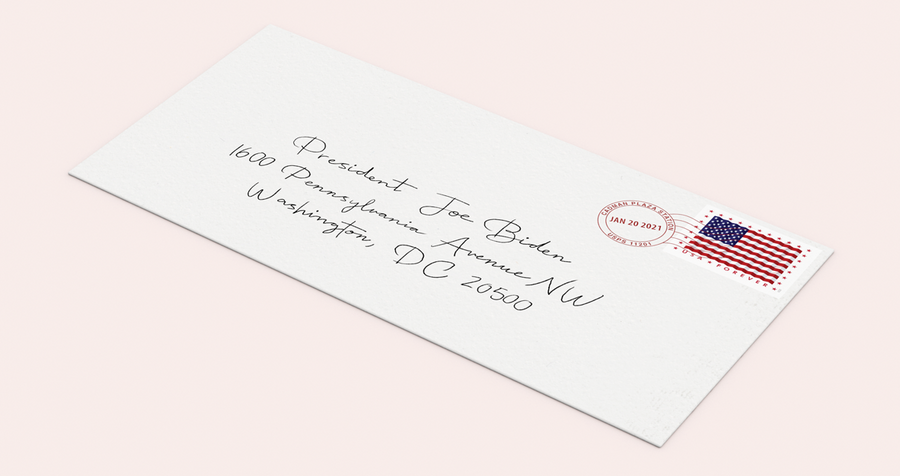 President Joe Biden
1600 Pennsylvania Avenue NW
Washington,
DC 20500
CADMAN PLAZA STATION
JAN 20 2021
USPS 11201
USA FOREVER